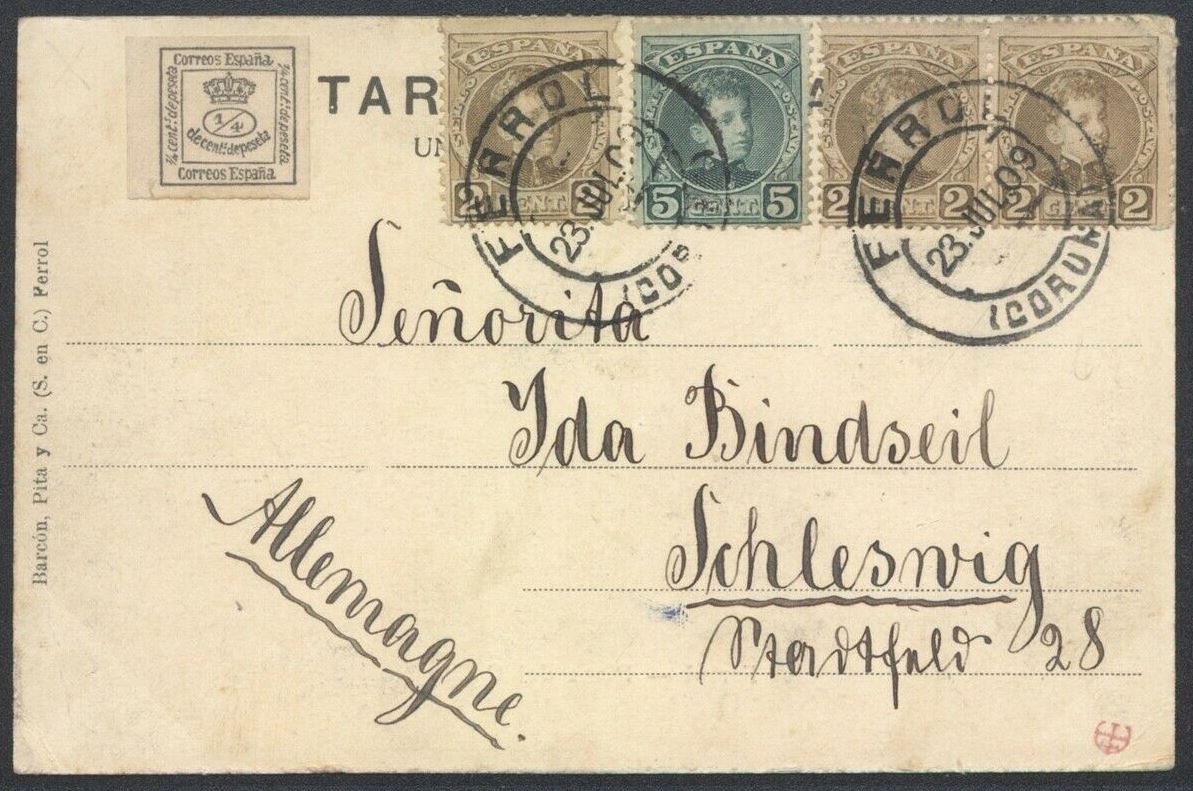 Correos España
¼ cent: de peseta
1/4
de cent: de peseta
¼ cent: de peseta
Correos España
TAR
UN
ESPAÑA
SELLO POSTAL
2 CENT. 2
ESPAÑA
SELLO POSTAL
5 CENT. 5
ESPAÑA
SELLO POSTAL
2 CENT. 2
ESPAÑA
SELLO POSTAL
2 CENT. 2
FERROL
23.JUL.09
(CORUÑA)
FERROL
23.JUL.09
(CORUÑA)
Señorita
Ida Bindseil
Schleswig
Stadtfeld 28
Allemagne.
Barcón, Pita y Ca. (S. en C.) Ferrol